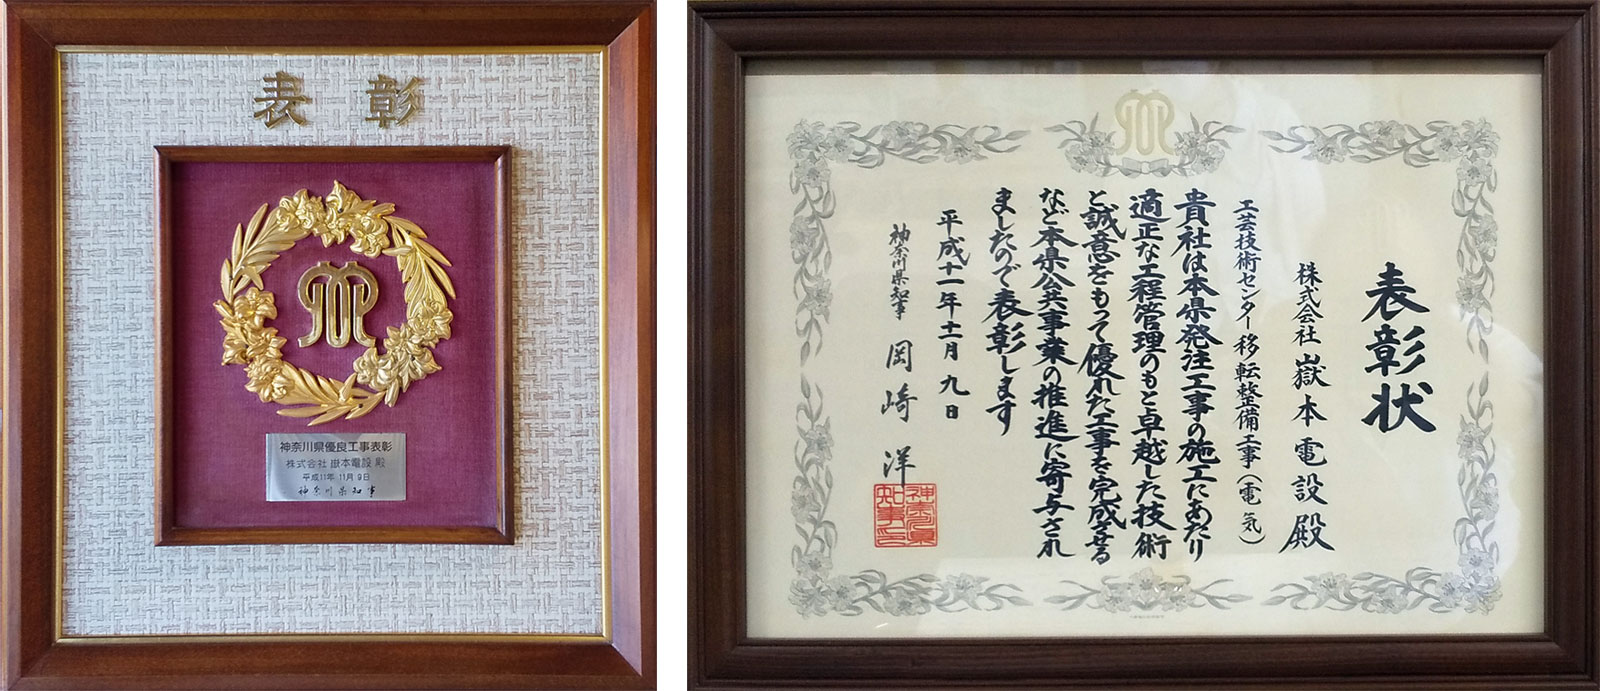 表彰
神奈川県優良工事表彰
株式会社 嶽本電設 殿
平成11年 11月 9日
神奈川県知事
表彰状
株式会社 嶽本電設殿
工芸技術センター移転整備工事(電気)
貴社は本県発注工事の施工にあたり
適正な工程管理のもと卓越した技術
と誠意をもって優れた工事を完成せる
など本県公共事業の推進に寄与され
ましたので表彰します
平成十一年十一月九日
神奈川県知事 岡崎洋
神奈川県
知事之印